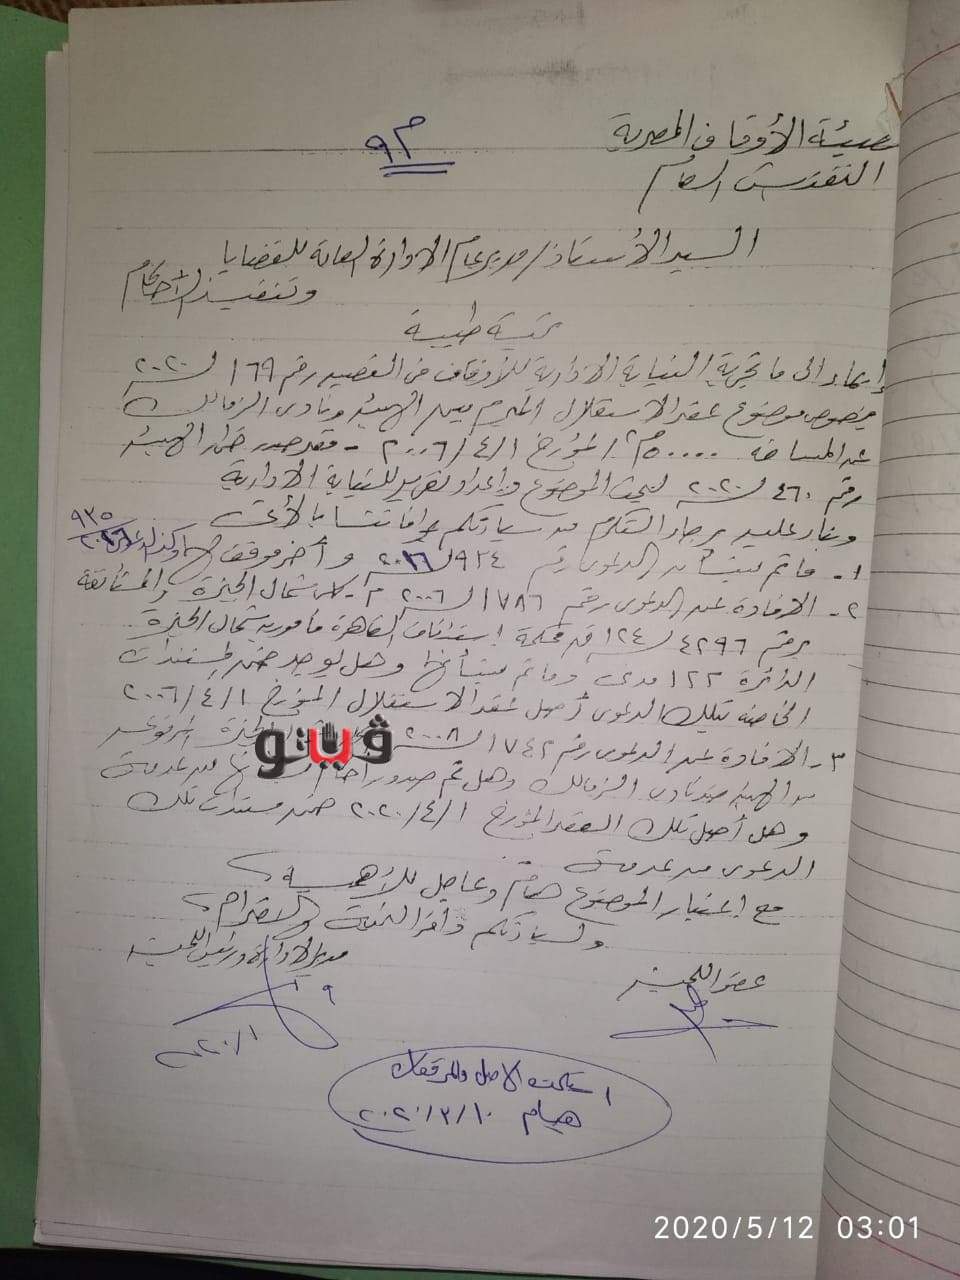 هيئة الأوقاف المصرية
م ٩
التفتيش العام
السيد الأستاذ / مدير عام الإدارة العامة للقضايا
وتنفيذ الأحكام
تحية طيبة
إيماء إلى ما تجريه النيابة الإدارية للأوقاف في القضية رقم ١٦٩ لسنة ٢٠٢٠
بخصوص موضوع عقد الاستغلال المبرم بين الهيئة ونادى الزمالك
عن المساحة المؤرخ ٢٠٠٦/٤/١ - فقد صدر قرار الهيئة
رقم ٤٦٠ لسنة ٢٠٢٠ لبحث الموضوع وإعداد تقرير للنيابة الإدارية
وبناء عليه برجاء التكرم من سيادتكم بموافاتنا بالآتى
١ - ما تم بشأن الدعوى رقم ٩٣٤ لسنة ٢٠١٦ وآخر موقف لها وكذا الدعوى ٩٣٥ / ٢٠١٦
٢ - الافادة عن الدعوى رقم ١٧٨٦ لسنة ٢٠٠٦ م. كلى شمال الجيزة والمستأنفة
برقم ٤٢٩٦ لسنة ١٢٤ ق محكمة استئناف القاهرة مأمورية شمال الجيزة
الدائرة ١٢٢ مدنى وما تم بشأنها وهل يوجد ضمن المستندات
الخاصة بتلك الدعوى أصل عقد الاستغلال المؤرخ ٢٠٠٦/٤/١
ڤيتو
٣ - الافادة عن الدعوى رقم ١٧٤٢ لسنة ٢٠٠٨ الجيزة المرفوعة
من الهيئة ضد نادى الزمالك وهل تم صدور أحكام من عدمه
وهل أصل تلك العقد المؤرخ ٢٠٢٠/٤/١ ضمن مستندات تلك
الدعوى من عدمه
مع اعتبار الموضوع هام وعاجل للأهمية
ولسيادتكم وافر التحية والاحترام
عضو اللجنة
مدير الإدارة ورئيس اللجنة
استلمت الاصل والمرفقات
هيام ٢٠٢٠/٣/١٠
2020/5/12 03:01